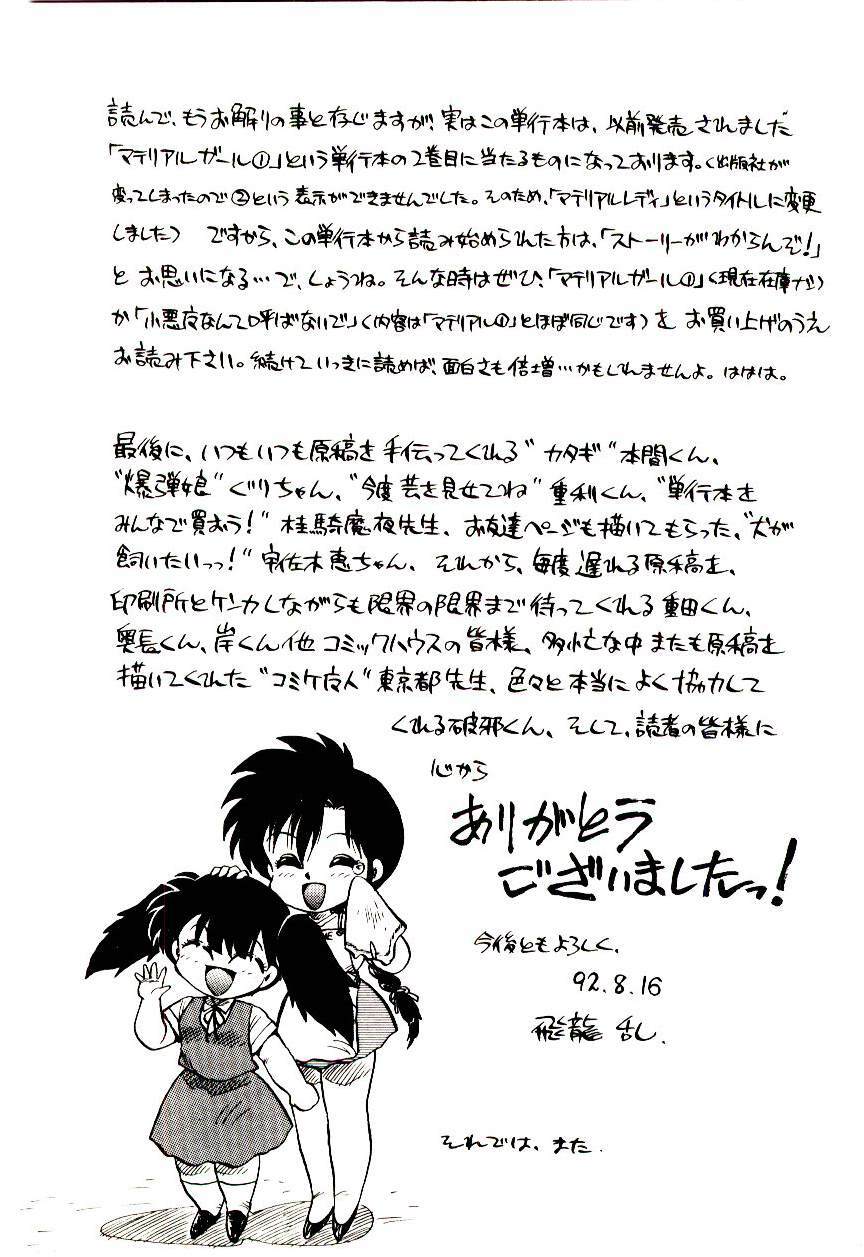 読んで、もうお解りの事と存じますが、実はこの単行本は、以前発売されました
「マテリアルガール①」という単行本の2巻目に当たるものになっております。(出版社が
変ってしまったので②という表示ができませんでした。そのため、「マテリアルレディ」というタイトルに変更
しました) ですから、この単行本から読み始められた方は、「ストーリーがわからんぞ!」
と お思いになる…で、しょうね。そんな時はぜひ、「マテリアルガール①」(現在在庫ナシ)
か「小悪夜なんて呼ばないで」(内容は「マテリアル①」とほぼ同じです)を お買い上げのうえ
お読み下さい。続けていっきに読めば、面白さも倍増…かもしれませんよ。ははは。
最後に、いつもいつも原稿を手伝ってくれる“カタギ”本間くん、
“爆弾娘”ぐりちゃん、“今度芸を見せてね”重利くん、“単行本を
みんなで買おう!”桂騎魔夜先生、お友達ページも描いてもらった、“犬が
飼いたいっっ!”宇佐木恵ちゃん、それから、毎度遅れる原稿を、
印刷所とケンカしながらも限界の限界まで待ってくれる重田くん、
奥長くん、岸くん他コミックハウスの皆様、多忙な中またも原稿を
描いてくれた“コミケ友人”東京都先生、色々と本当によく協力して
くれる破邪くん、そして、読者の皆様に
心から
ありがとう
ございましたっ!
今後ともよろしく、
92.8.16
飛龍 乱し
それでは、また.